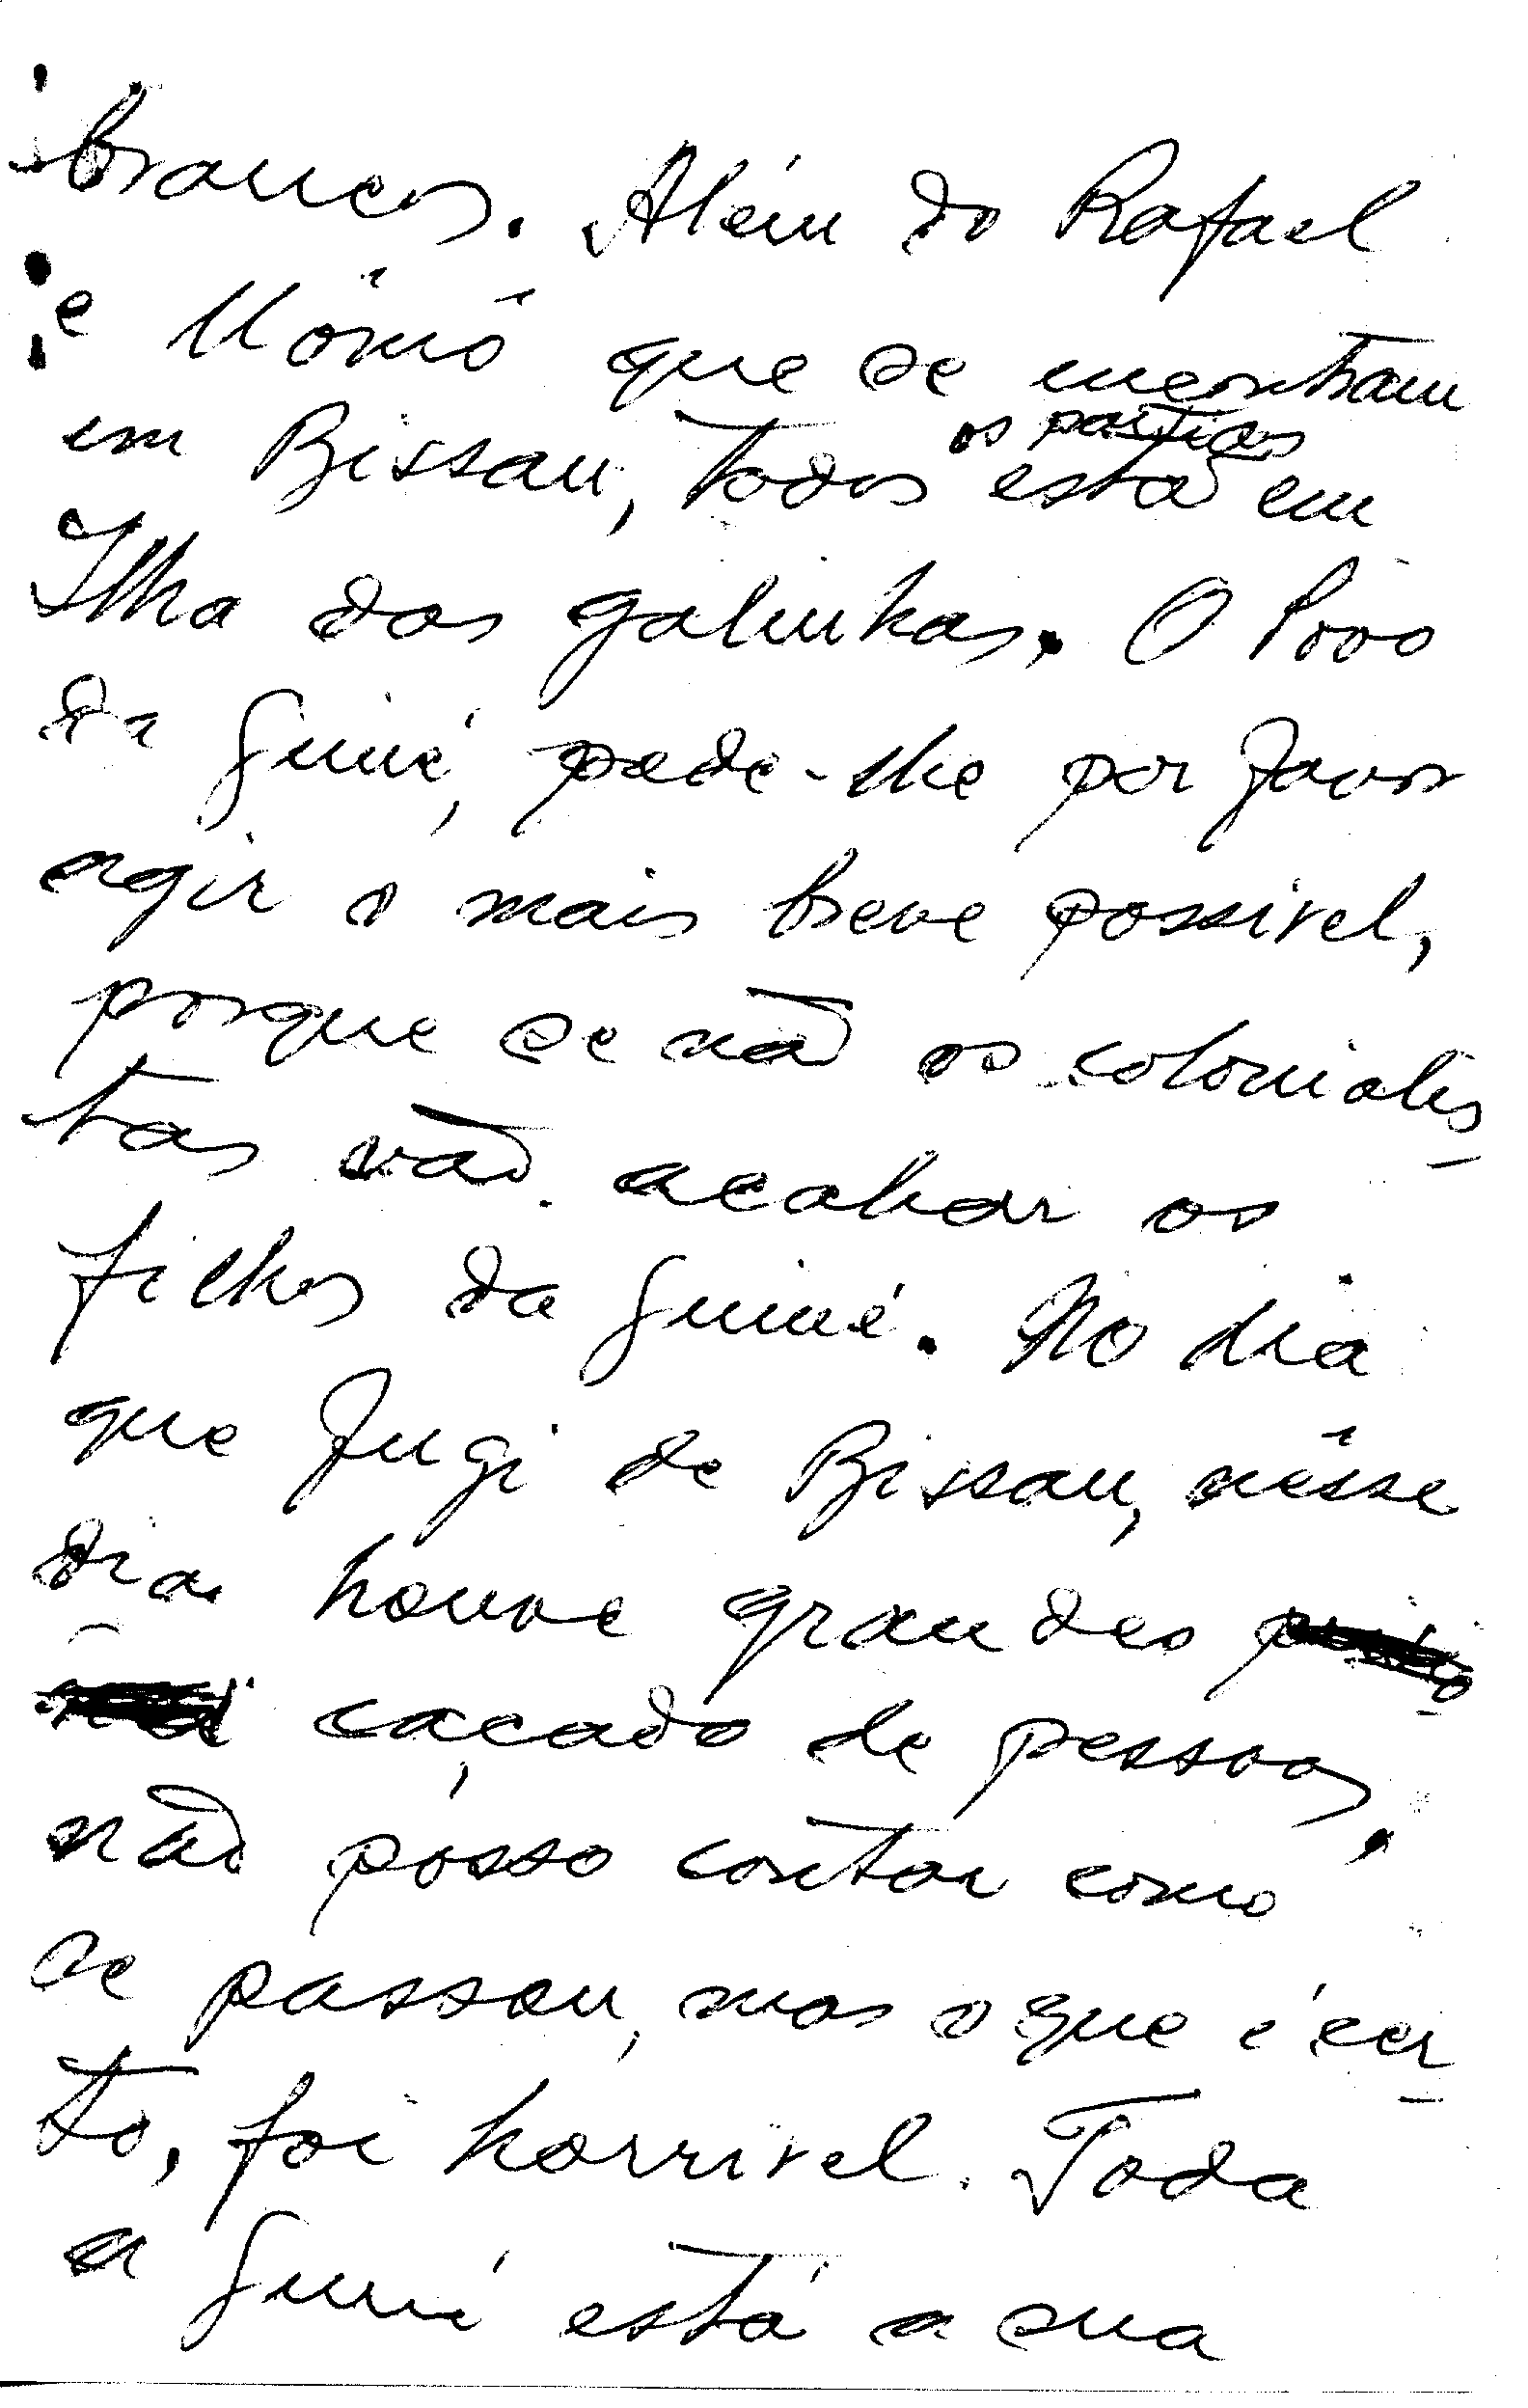 brancos. Além do Rafael
e Mômô que se encontram
em Bissau, todos os está em
Ilha das galinhas. O Povo
da Guiné, pede-lhe por favor
agir o mais breve possivel,
porque se não os colonialis
tas vão acabar os
filhos da Guiné. No dia
que fugi de Bissau, nêsse
dia houve grandes
caçado de pessoas,
não posso contar como
se passou, mas o que é cer
to, foi horrivel. Toda
a Guiné está a sua